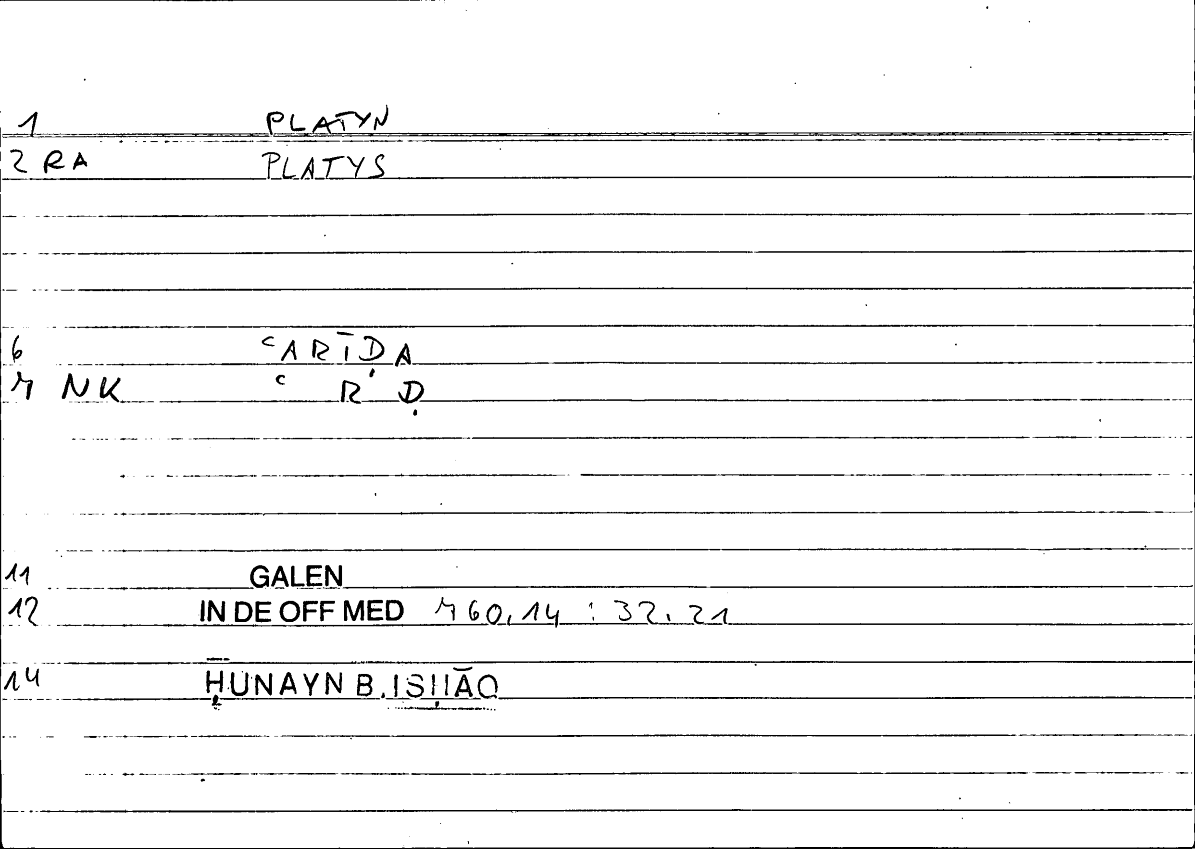 1 PLATYN
2 RA PLATYS
6 ʿARĪḌA
7 NK ʿ R Ḍ
11 GALEN
12 IN DE OFF MED 760,14 : 32.21
14 ḤUNAYN B. ISḤĀQ